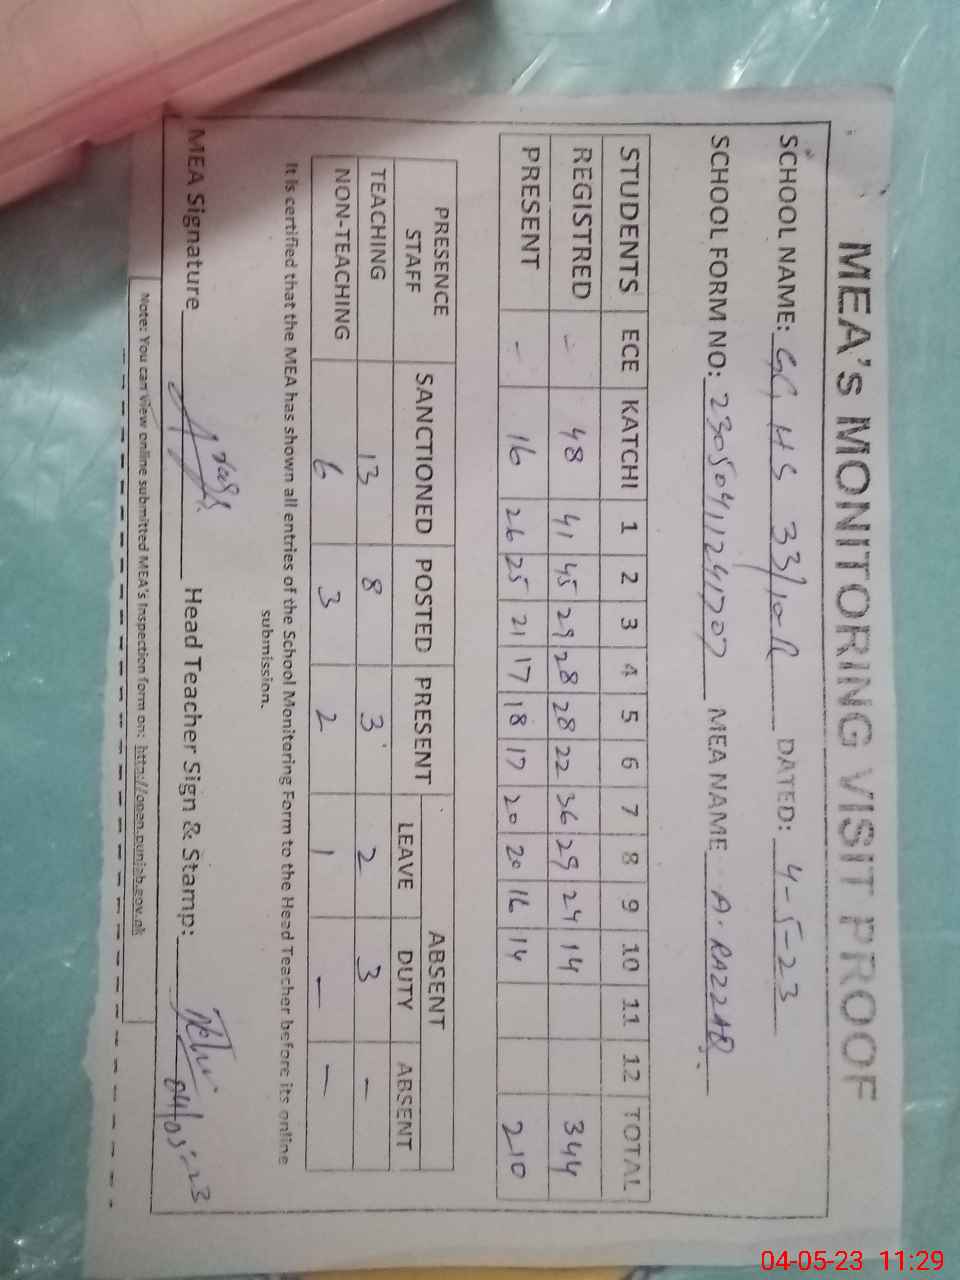 MEA's MONITORING VISIT PROOF
SCHOOL NAME: GGHS 33/10R DATED: 4-5-23
SCHOOL FORM NO: MEA NAME A. RAZZAQ
STUDENTS ECE KATCHI 1 2 3 4 5 6 7 8 9 10 11 12 TOTAL
REGISTRED - 48 41 45 29 28 28 22 36 29 24 14 344
PRESENT - 16 26 25 21 17 18 17 20 20 16 14 210
PRESENCE STAFF SANCTIONED POSTED PRESENT ABSENT
LEAVE DUTY ABSENT
TEACHING 13 8 3 2 3 -
NON-TEACHING 6 3 2 1 - -
It is certified that the MEA has shown all entries of the School Monitoring Form to the Head Teacher before its online
submission.
MEA Signature Head Teacher Sign & Stamp: 04/05-23
Note: You can view online submitted MEA's Inspection form on: http://open.punjab.gov.pk
04-05-23 11:29